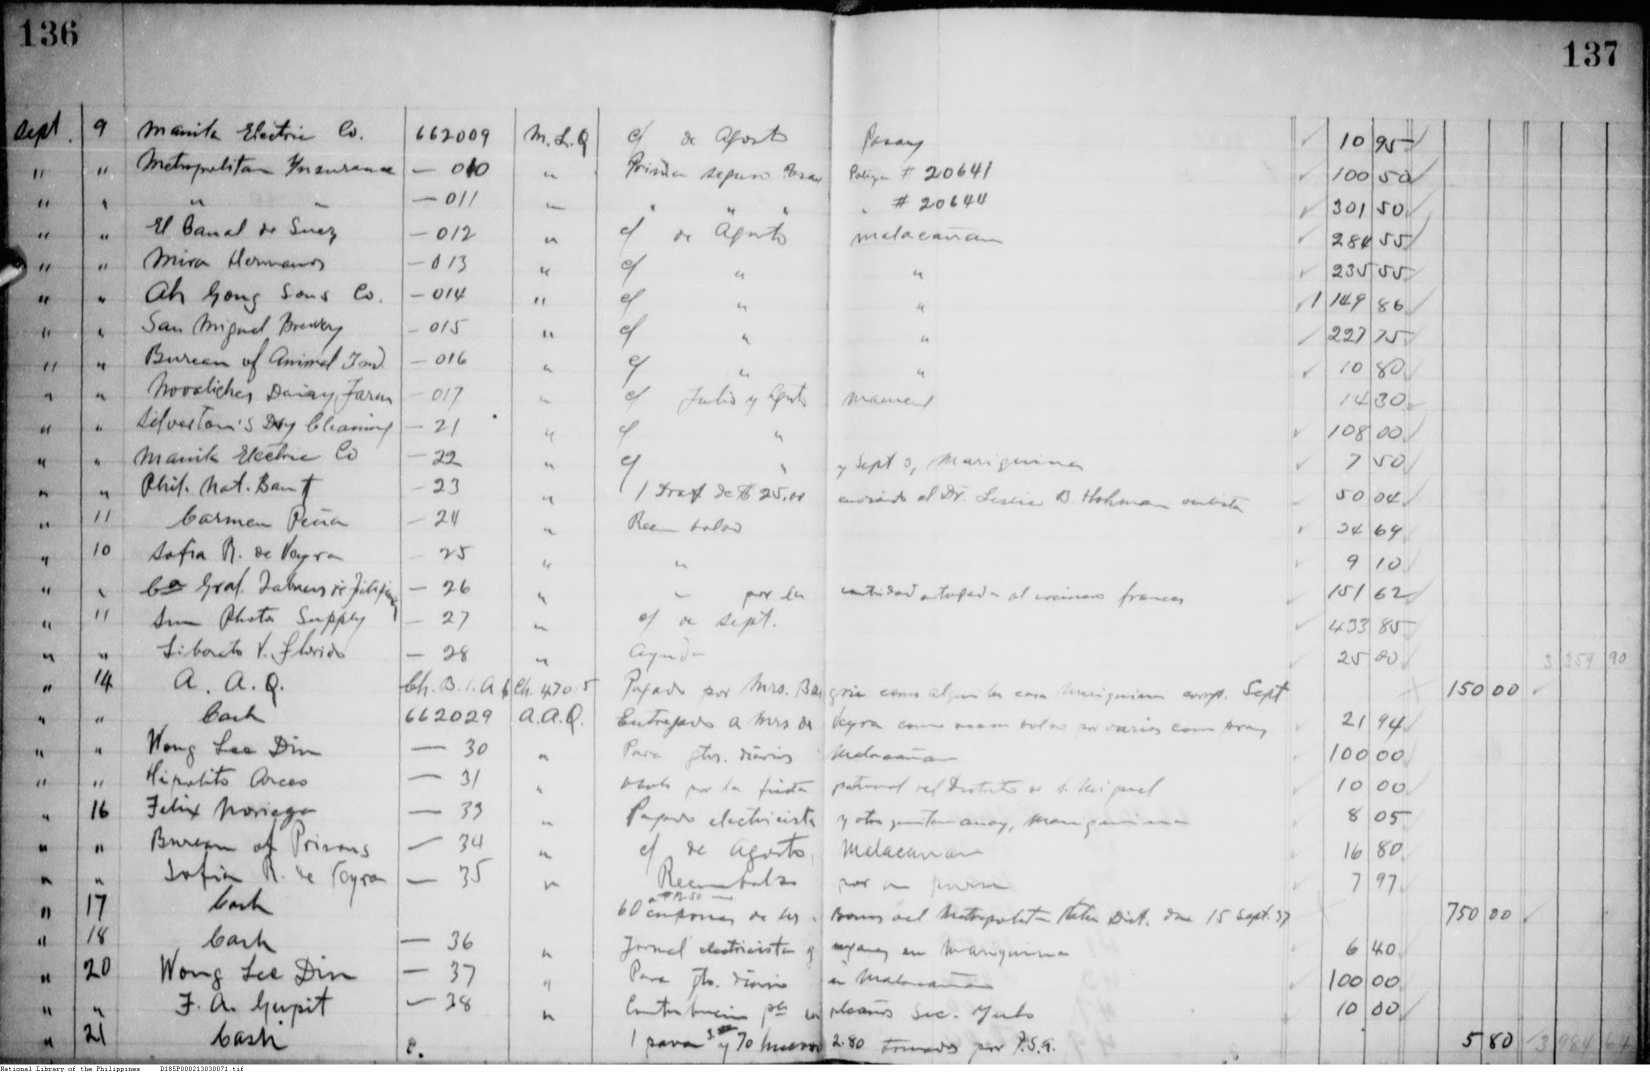 136 137
Sept. 9 Manila Electric Co. 662009 M.L.Q c/ de Agosto Pasay 10 95
" " Metropolitan Insurance — 010 " seguro Poliza # 20641 100 50
" " " " — 011 " " " " " # 20644 301 50
" " El Canal de Suez — 012 " c/ de Agosto Malacañan 284 55
" " Mira Hermanos — 013 " c/ " " 235 55
" " Ah Gong Sons Co. — 014 " c/ " " 1 149 86
" " San Miguel Brewery — 015 " c/ " " 227 75
" " Bureau of Animal Ind — 016 " c/ " " 10 80
" " Novaliches Dairy Farm — 017 " c/ Julio y Agosto 14 30
" " Silverton's Dry Cleaning — 21 " c/ " 108 00
" " Manila Electric Co — 22 " c/ " y Sept 3, Mariquina 7 50
" " Phil. Nat. Bank — 23 " 1 Draft de $ 25.00 enviado al Dr. Leslie B. Hohman 50 04
" 11 Carmen Peña — 24 " Reembolso 24 69
" 10 Sofia R. de Veyra — 25 " " 9 10
" " Ca Gral. Tabacos de Filipinas — 26 " " por la cantidad entregada al cocinero frances 151 62
" 11 Sun Photo Supply — 27 " c/ de Sept. 433 85
" " Liborato V. Florido — 28 " Ayuda 25 00 3 259 90
" 14 A. A. Q. Ch. B.I.A Ch. 4705 Pagado por Mrs. como alquiler casa Mariquina Sept 150 00
" " Cash 662029 A.A.Q. Entregado a Mrs de Veyra como reembolso por varias compras 21 94
" " Wong See Din — 30 " Para gtos. diarios Malacañan 100 00
" " Hipolito Arceo — 31 " por la fiesta patronal del Distrito de S. Miguel 10 00
" 16 Felix Noriega — 33 " Pagado electricista y otros Mariquina 8 05
" " Bureau of Prisons — 34 " c/ de Agosto, Malacañan 16 80
" " Sofia R. de Veyra — 35 " Reembolso por un 7 97
" 17 Cash 60 cupones de los Bonos del Metropolitan Water Dist. due 15 Sept. 37 750 00
" 18 Cash — 36 " Jornal electricista y en Mariquina 6 40
" 20 Wong See Din — 37 " Para gto. diario en Malacañan 100 00
" " F. A. Gupit — 38 " Contribucion 10 00
" 21 Cash 1 pavo y 70 huevos 2.80 tomados por P.S.Q. 5 80 3 984 64
National Library of the Philippines D185P000213030071.tif